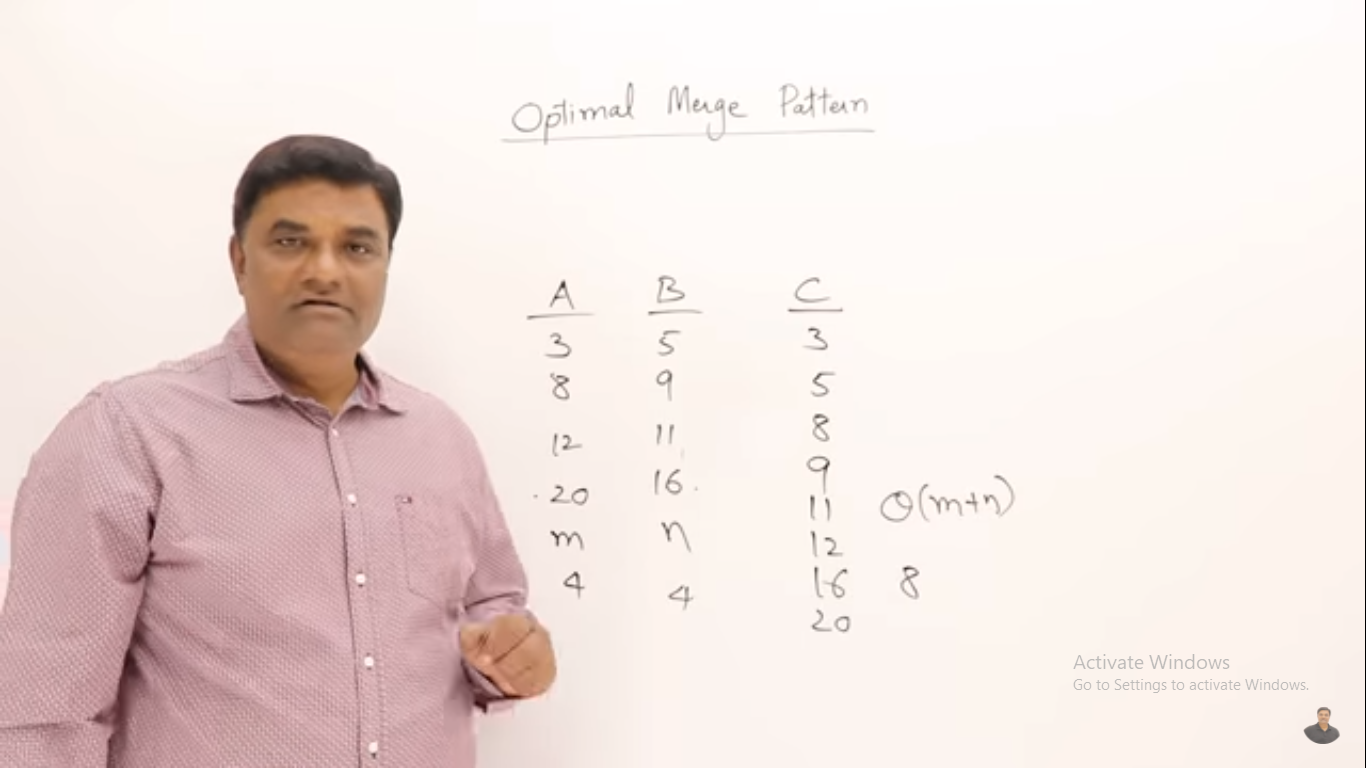 Optimal Merge Pattern
A B C
3 5 3
8 9 5
12 11 8
. 20 16 . 9
11 θ(m+n)
m n 12
4 4 16 8
20
Activate Windows
Go to Settings to activate Windows.